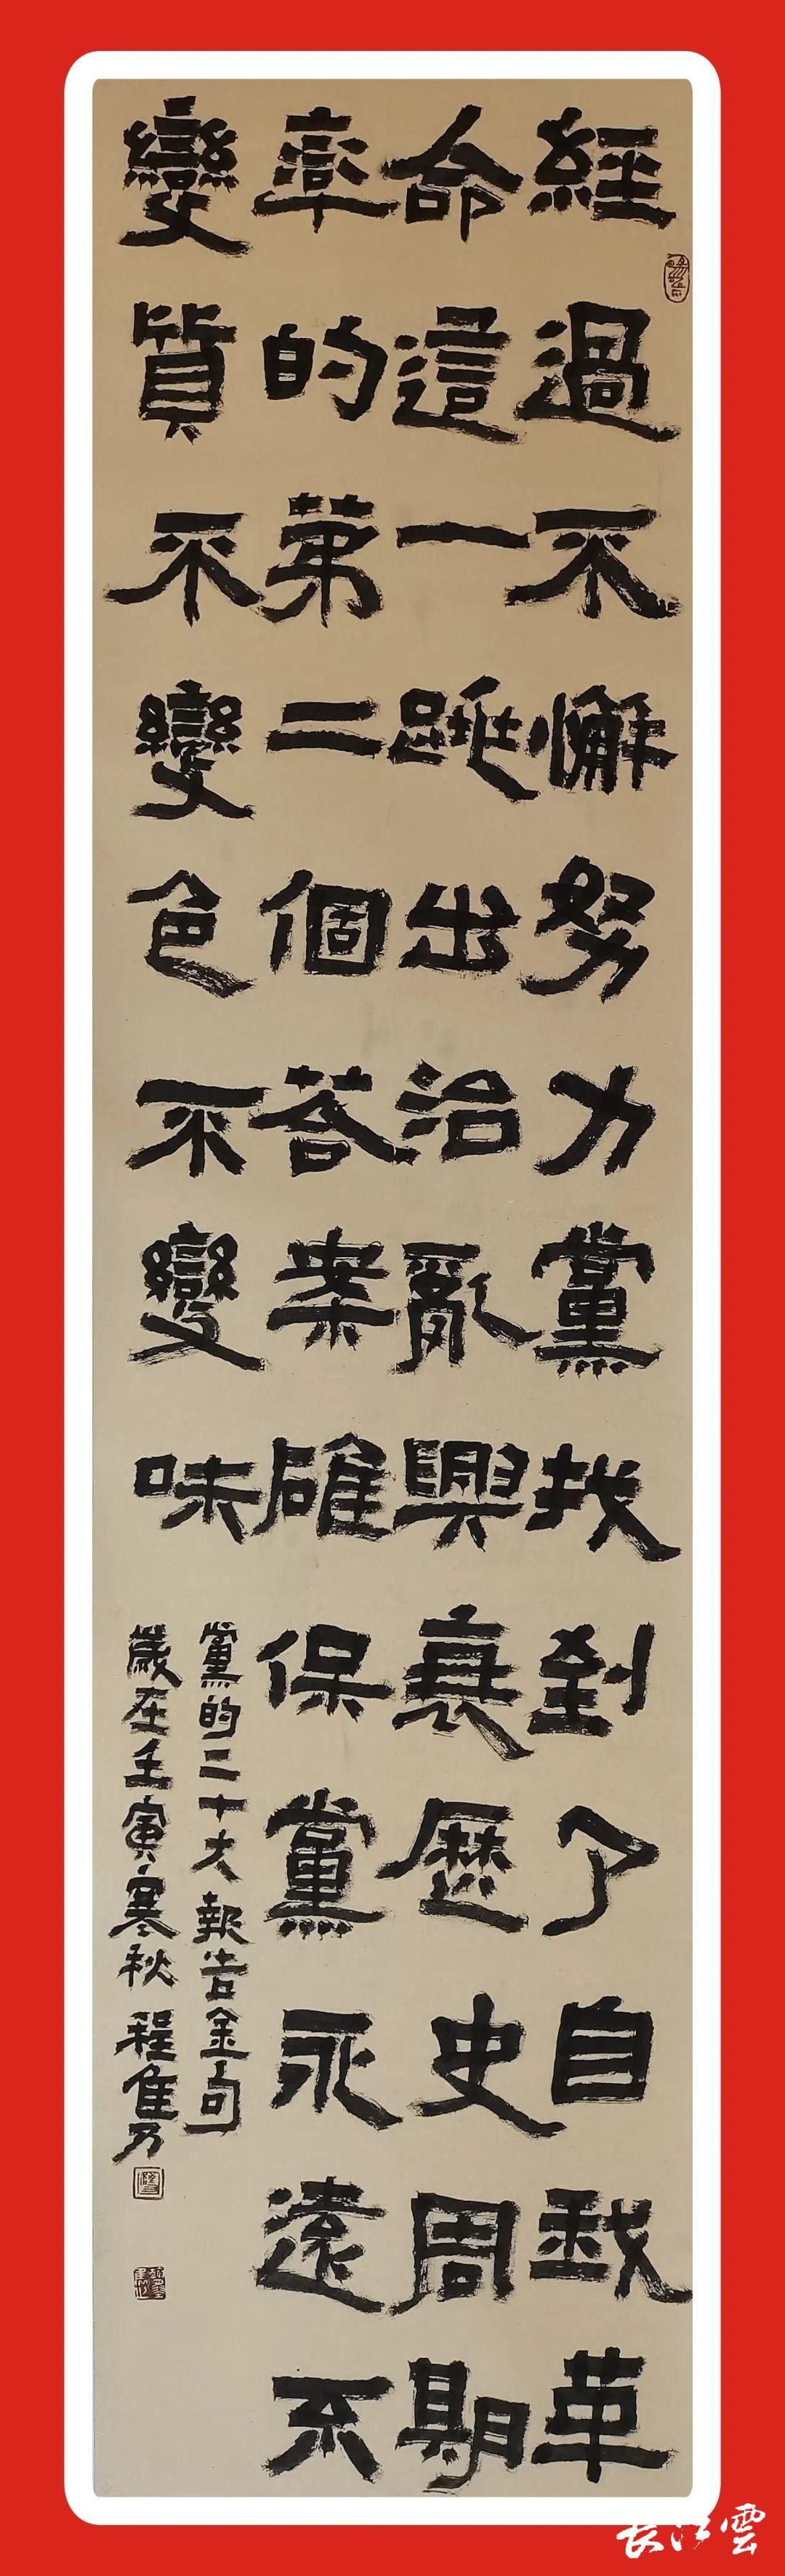 經過不懈努力黨找到了自我革
命這一跳出治亂興衰歷史周期
率的第二個答案確保黨永遠不
變質不變色不變味
黨的二十大報告金句
歲在壬寅寒秋 程隽
長江雲